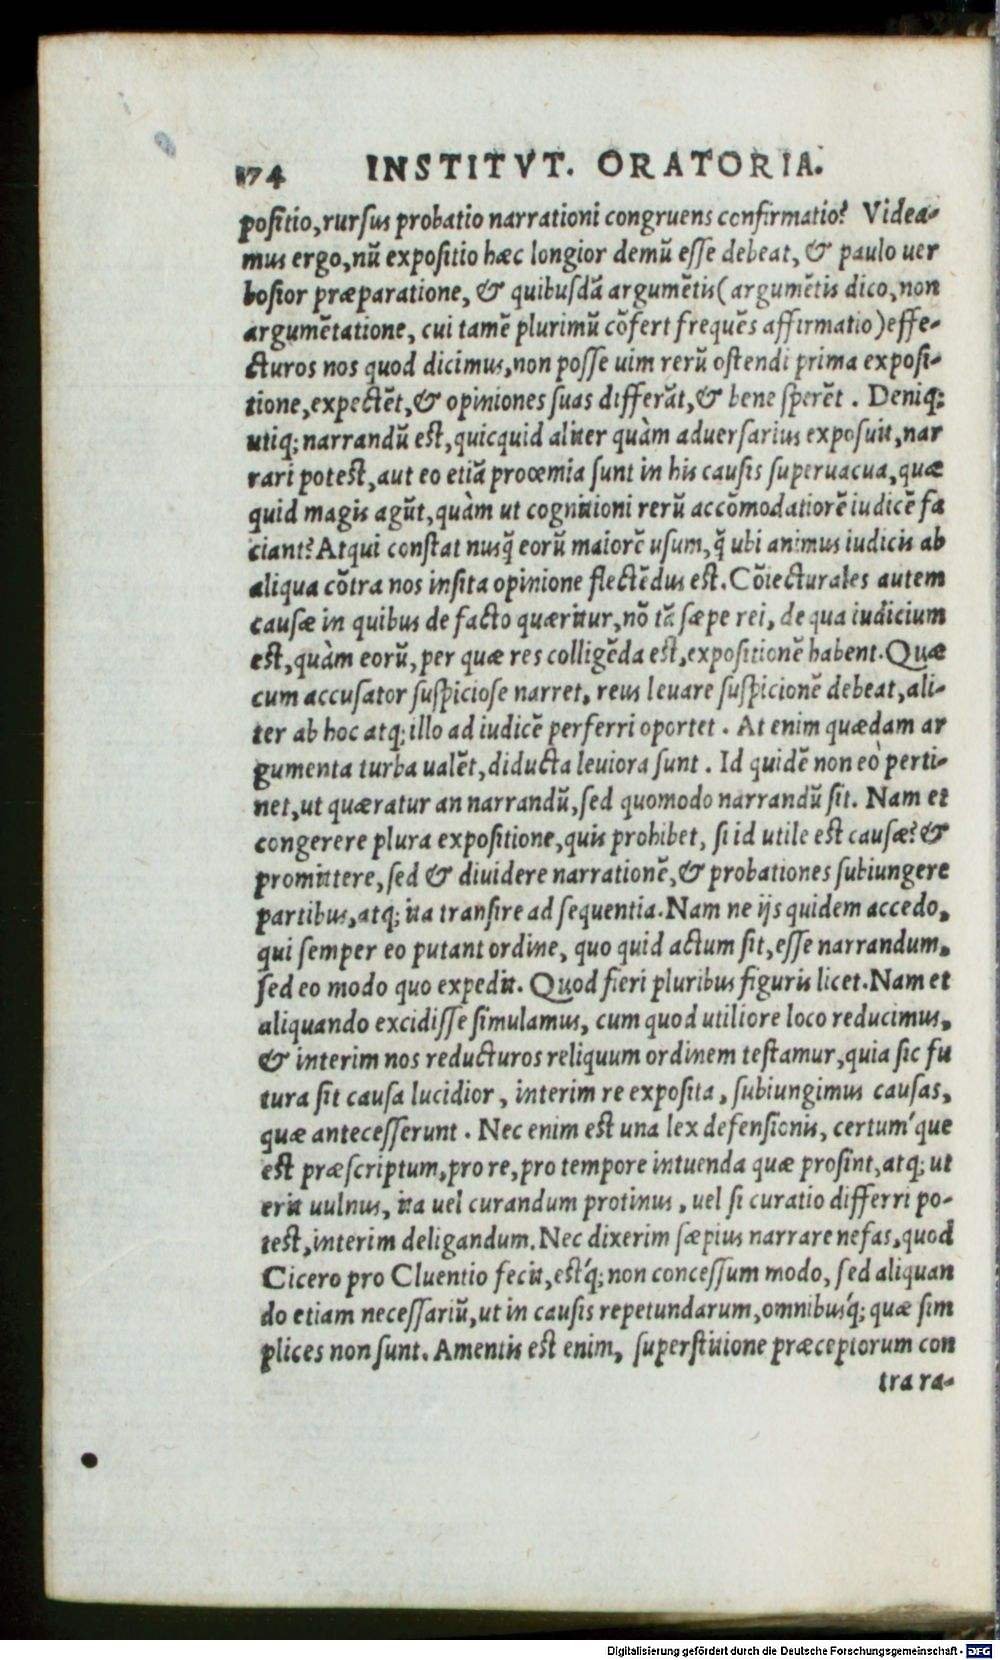 174 INSTITVT. ORATORIA.
positio, rursus probatio narrationi congruens confirmatio? Videa-
mus ergo, nũ expositio hæc longior demũ esse debeat, & paulo uer
bosior præparatione, & quibusdã argumẽtis (argumẽtis dico, non
argumẽtatione, cui tamẽ plurimũ cõfert frequẽs affirmatio) effe-
cturos nos quod dicimus, non posse uim rerũ ostendi prima exposi-
tione, expectẽt, & opiniones suas differãt, & bene sperẽt. Deniq;
utiq; narrandũ est, quicquid aliter quàm aduersarius exposuit, nar
rari potest, aut eo etiã proœmia sunt in his causis superuacua, quæ
quid magis agũt, quàm ut cognitioni rerũ accõmodatiorẽ iudicẽ fa
ciant? Atqui constat nusq̃ eorũ maiorẽ usum, q̃ ubi animus iudicis ab
aliqua cõtra nos insita opinione flectẽdus est. Cõiecturales autem
causæ in quibus de facto quæritur, nõ tã sæpe rei, de qua iudicium
est, quàm eorũ, per quæ res colligẽda est, expositionẽ habent. Quæ
cum accusator suspiciose narret, reus leuare suspicionẽ debeat, ali-
ter ab hoc atq; illo ad iudicẽ perferri oportet. At enim quædam ar
gumenta turba ualẽt, diducta leuiora sunt. Id quidẽ non eò perti-
net, ut quæratur an narrandũ, sed quomodo narrandũ sit. Nam et
congerere plura expositione, quis prohibet, si id utile est causæ? &
promittere, sed & diuidere narrationẽ, & probationes subiungere
partibus, atq; ita transire ad sequentia. Nam ne ijs quidem accedo,
qui semper eo putant ordine, quo quid actum sit, esse narrandum,
sed eo modo quo expedit. Quod fieri pluribus figuris licet. Nam et
aliquando excidisse simulamus, cum quod utiliore loco reducimus,
& interim nos reducturos reliquum ordinem testamur, quia sic fu
tura sit causa lucidior, interim re exposita, subiungimus causas,
quæ antecesserunt. Nec enim est una lex defensionis, certum´que
est præscriptum, pro re, pro tempore intuenda quæ prosint, atq; ut
erit uulnus, ita uel curandum protinus, uel si curatio differri po-
test, interim deligandum. Nec dixerim sæpius narrare nefas, quod
Cicero pro Cluentio fecit, est´q; non concessum modo, sed aliquan
do etiam necessariũ, ut in causis repetundarum, omnibus´q; quæ sim
plices non sunt. Amentis est enim, superstitione præceptorum con
tra ra-
Digitalisierung gefördert durch die Deutsche Forschungsgemeinschaft - DFG